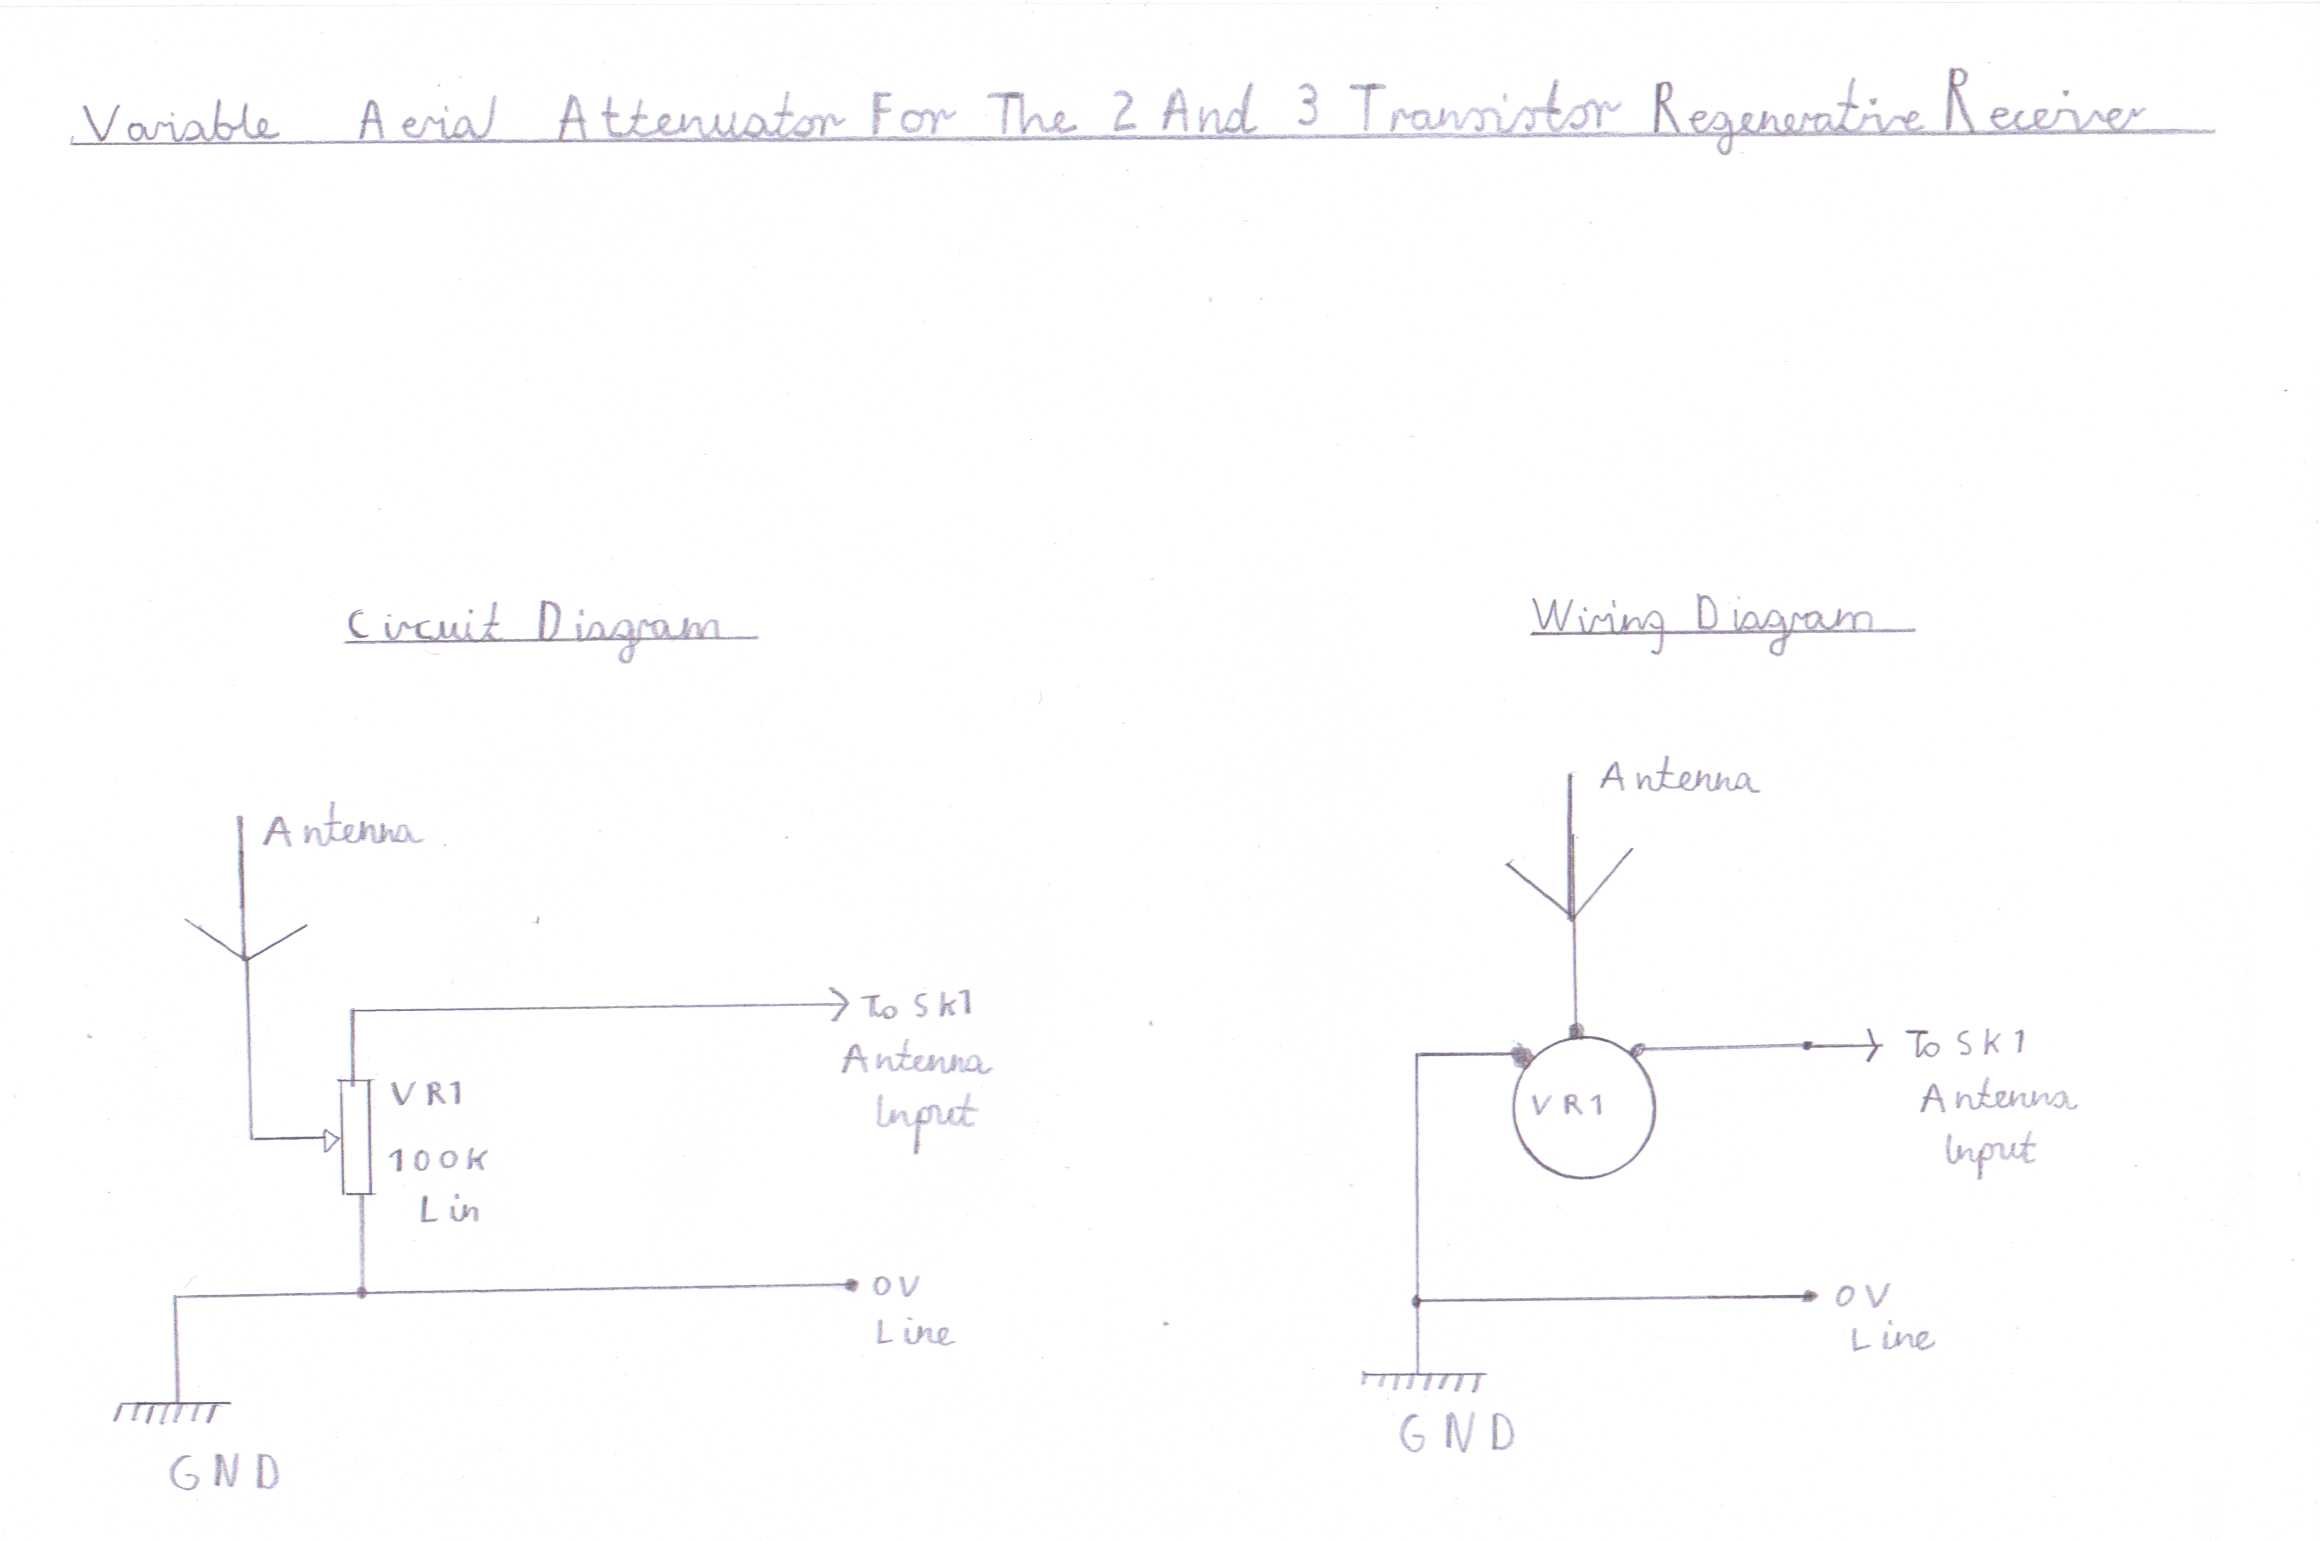 Variable Aerial Attenuator For The 2 And 3 Transistor Regenerative Receiver
Circuit Diagram
Antenna
To SK1
Antenna
Input
VR1
100K
Lin
0V
Line
GND
Wiring Diagram
Antenna
To SK1
Antenna
Input
VR1
0V
Line
GND